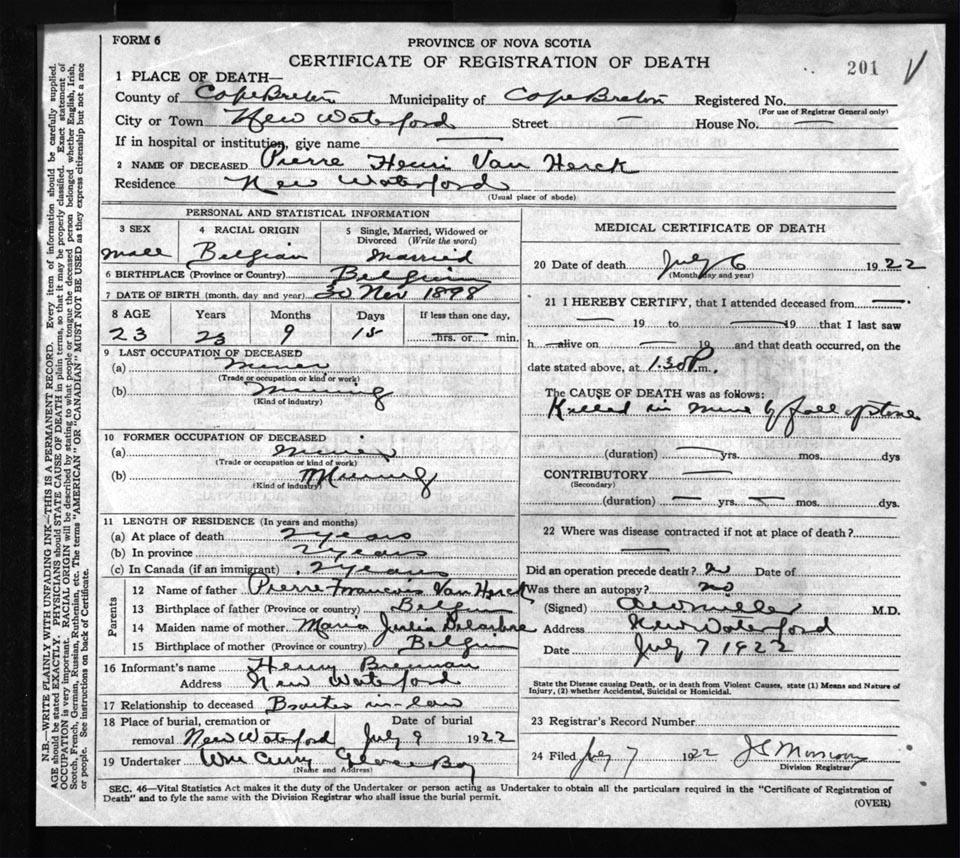 FORM 6
PROVINCE OF NOVA SCOTIA
CERTIFICATE OF REGISTRATION OF DEATH
201
1 PLACE OF DEATH—
County of Cape Breton Municipality of Cape Breton Registered No.
(For use of Registrar General only)
City or Town New Waterford Street — House No. —
If in hospital or institution, give name —
2 NAME OF DECEASED Pierre Henri Van Herck
Residence New Waterford
(Usual place of abode)
PERSONAL AND STATISTICAL INFORMATION
3 SEX
male
4 RACIAL ORIGIN
Belgian
5 Single, Married, Widowed or Divorced (Write the word)
Married
6 BIRTHPLACE (Province or Country) Belgium
7 DATE OF BIRTH (month, day and year) 30 Nov 1898
8 AGE Years Months Days If less than one day,
23 23 9 15 — hrs. or — min.
9 LAST OCCUPATION OF DECEASED
(a) miner
(Trade or occupation or kind or work)
(b) Mining
(Kind of industry)
10 FORMER OCCUPATION OF DECEASED
(a) miner
(Trade or occupation or kind of work)
(b) Mining
(Kind of industry)
11 LENGTH OF RESIDENCE (In years and months)
(a) At place of death 2 years
(b) In province 2 years
(c) In Canada (if an immigrant) 2 years
Parents
12 Name of father Pierre Francois Van Herck
13 Birthplace of father (Province or country) Belgium
14 Maiden name of mother Maria Julia
15 Birthplace of mother (Province or country) Belgium
16 Informant's name Henry Brennan
Address New Waterford
17 Relationship to deceased Brother in-law
18 Place of burial, cremation or removal New Waterford
Date of burial July 9 1922
19 Undertaker Wm Curry Glace Bay
(Name and Address)
MEDICAL CERTIFICATE OF DEATH
20 Date of death July 6 1922
(Month, day and year)
21 I HEREBY CERTIFY, that I attended deceased from —
— 19 to — 19 that I last saw
h— alive on — 19 and that death occurred, on the
date stated above, at 1.30 P.m.
The CAUSE OF DEATH was as follows:
Killed in mine by fall of stone
(duration) — yrs. mos. dys
CONTRIBUTORY —
(Secondary)
(duration) — yrs. — mos. dys.
22 Where was disease contracted if not at place of death?
—
Did an operation precede death? no Date of
Was there an autopsy? no
(Signed) M.D.
Address New Waterford
Date July 7 1922
State the Disease causing Death, or in death from Violent Causes, state (1) Means and Nature of
Injury, (2) whether Accidental, Suicidal or Homicidal.
23 Registrar's Record Number
24 Filed July 7 1922
Division Registrar
SEC. 46—Vital Statistics Act makes it the duty of the Undertaker or person acting as Undertaker to obtain all the particulars required in the "Certificate of Registration of
Death" and to fyle the same with the Division Registrar who shall issue the burial permit.
(OVER)
N.B.—WRITE PLAINLY WITH UNFADING INK—THIS IS A PERMANENT RECORD. Every item of information should be carefully supplied.
AGE should be stated EXACTLY. PHYSICIANS should STATE CAUSE OF DEATH in plain terms, so that it may be properly classified. Exact statement of
OCCUPATION is very important. RACIAL ORIGIN will be described by stating to what people or tongue the deceased person belonged whether English, Irish,
Scotch, French, German, Russian, Ruthenian, etc. The terms "AMERICAN" OR "CANADIAN" MUST NOT BE USED as they express citizenship but not a race
or people. See instructions on back of Certificate.